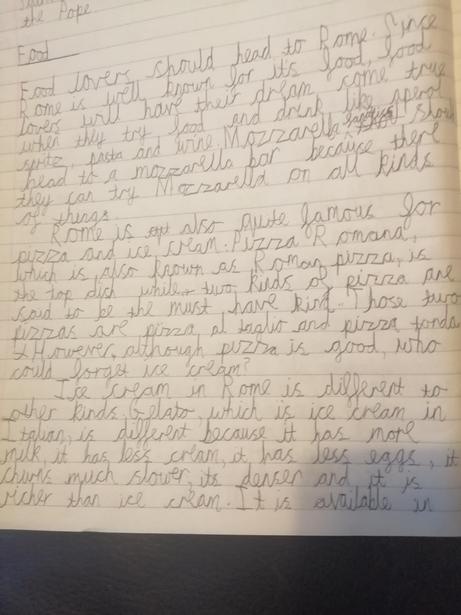 the Pope
Food
Food lovers should head to Rome. Since
Rome is well known for it's food, food
lovers will have their dream come true
when they try food and drink like aperol
spritz, pasta and wine. Mozzarella should
head to a mozzarella bar because there
they can try Mozzarella on all kinds
of things.
Rome is also quite famous for
pizza and ice cream. Pizza Romana,
which is also known as Roman pizza, is
the top dish while two kinds of pizza are
said to be the must have kind. Those two
pizzas are pizza al taglio and pizza tonda
However, although pizza is good, who
could forget ice cream?
Ice cream in Rome is different to
other kinds. Gelato, which is ice cream in
Italian, is different because it has more
milk, it has less cream, it has less eggs, it
churns much slower, its denser and it is
richer than ice cream. It is available in